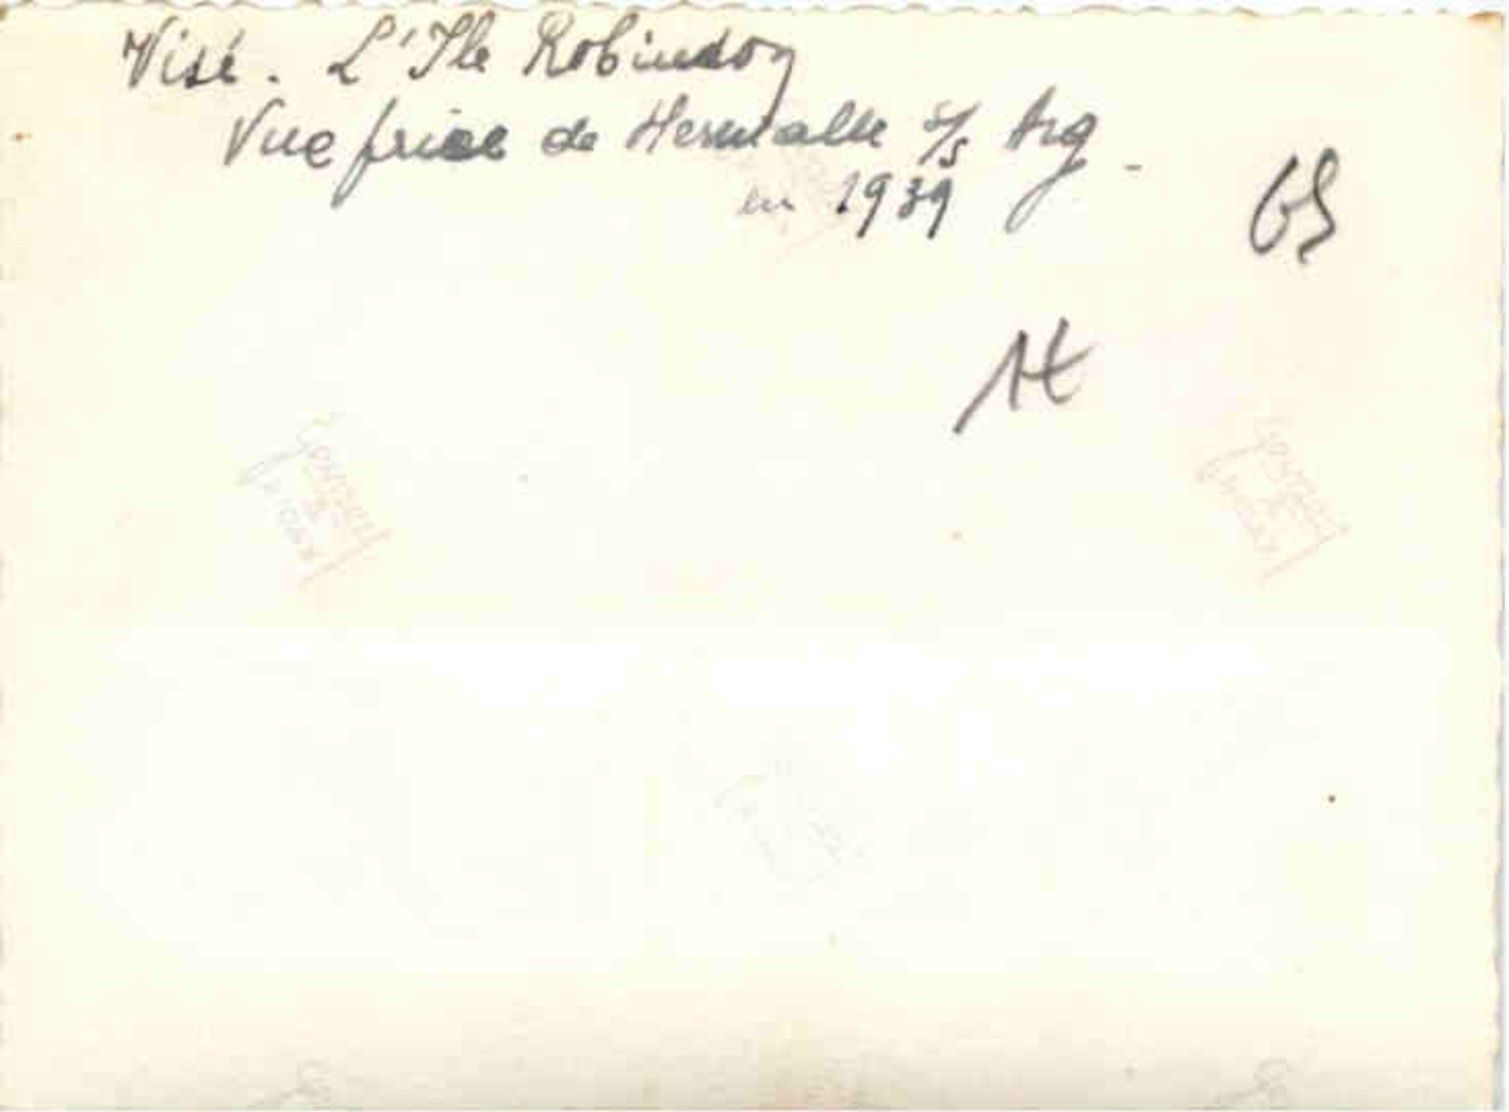 Visé. L'Ile Robinson
Vue prise de Hermalle s/s Arg.
en 1939
GS